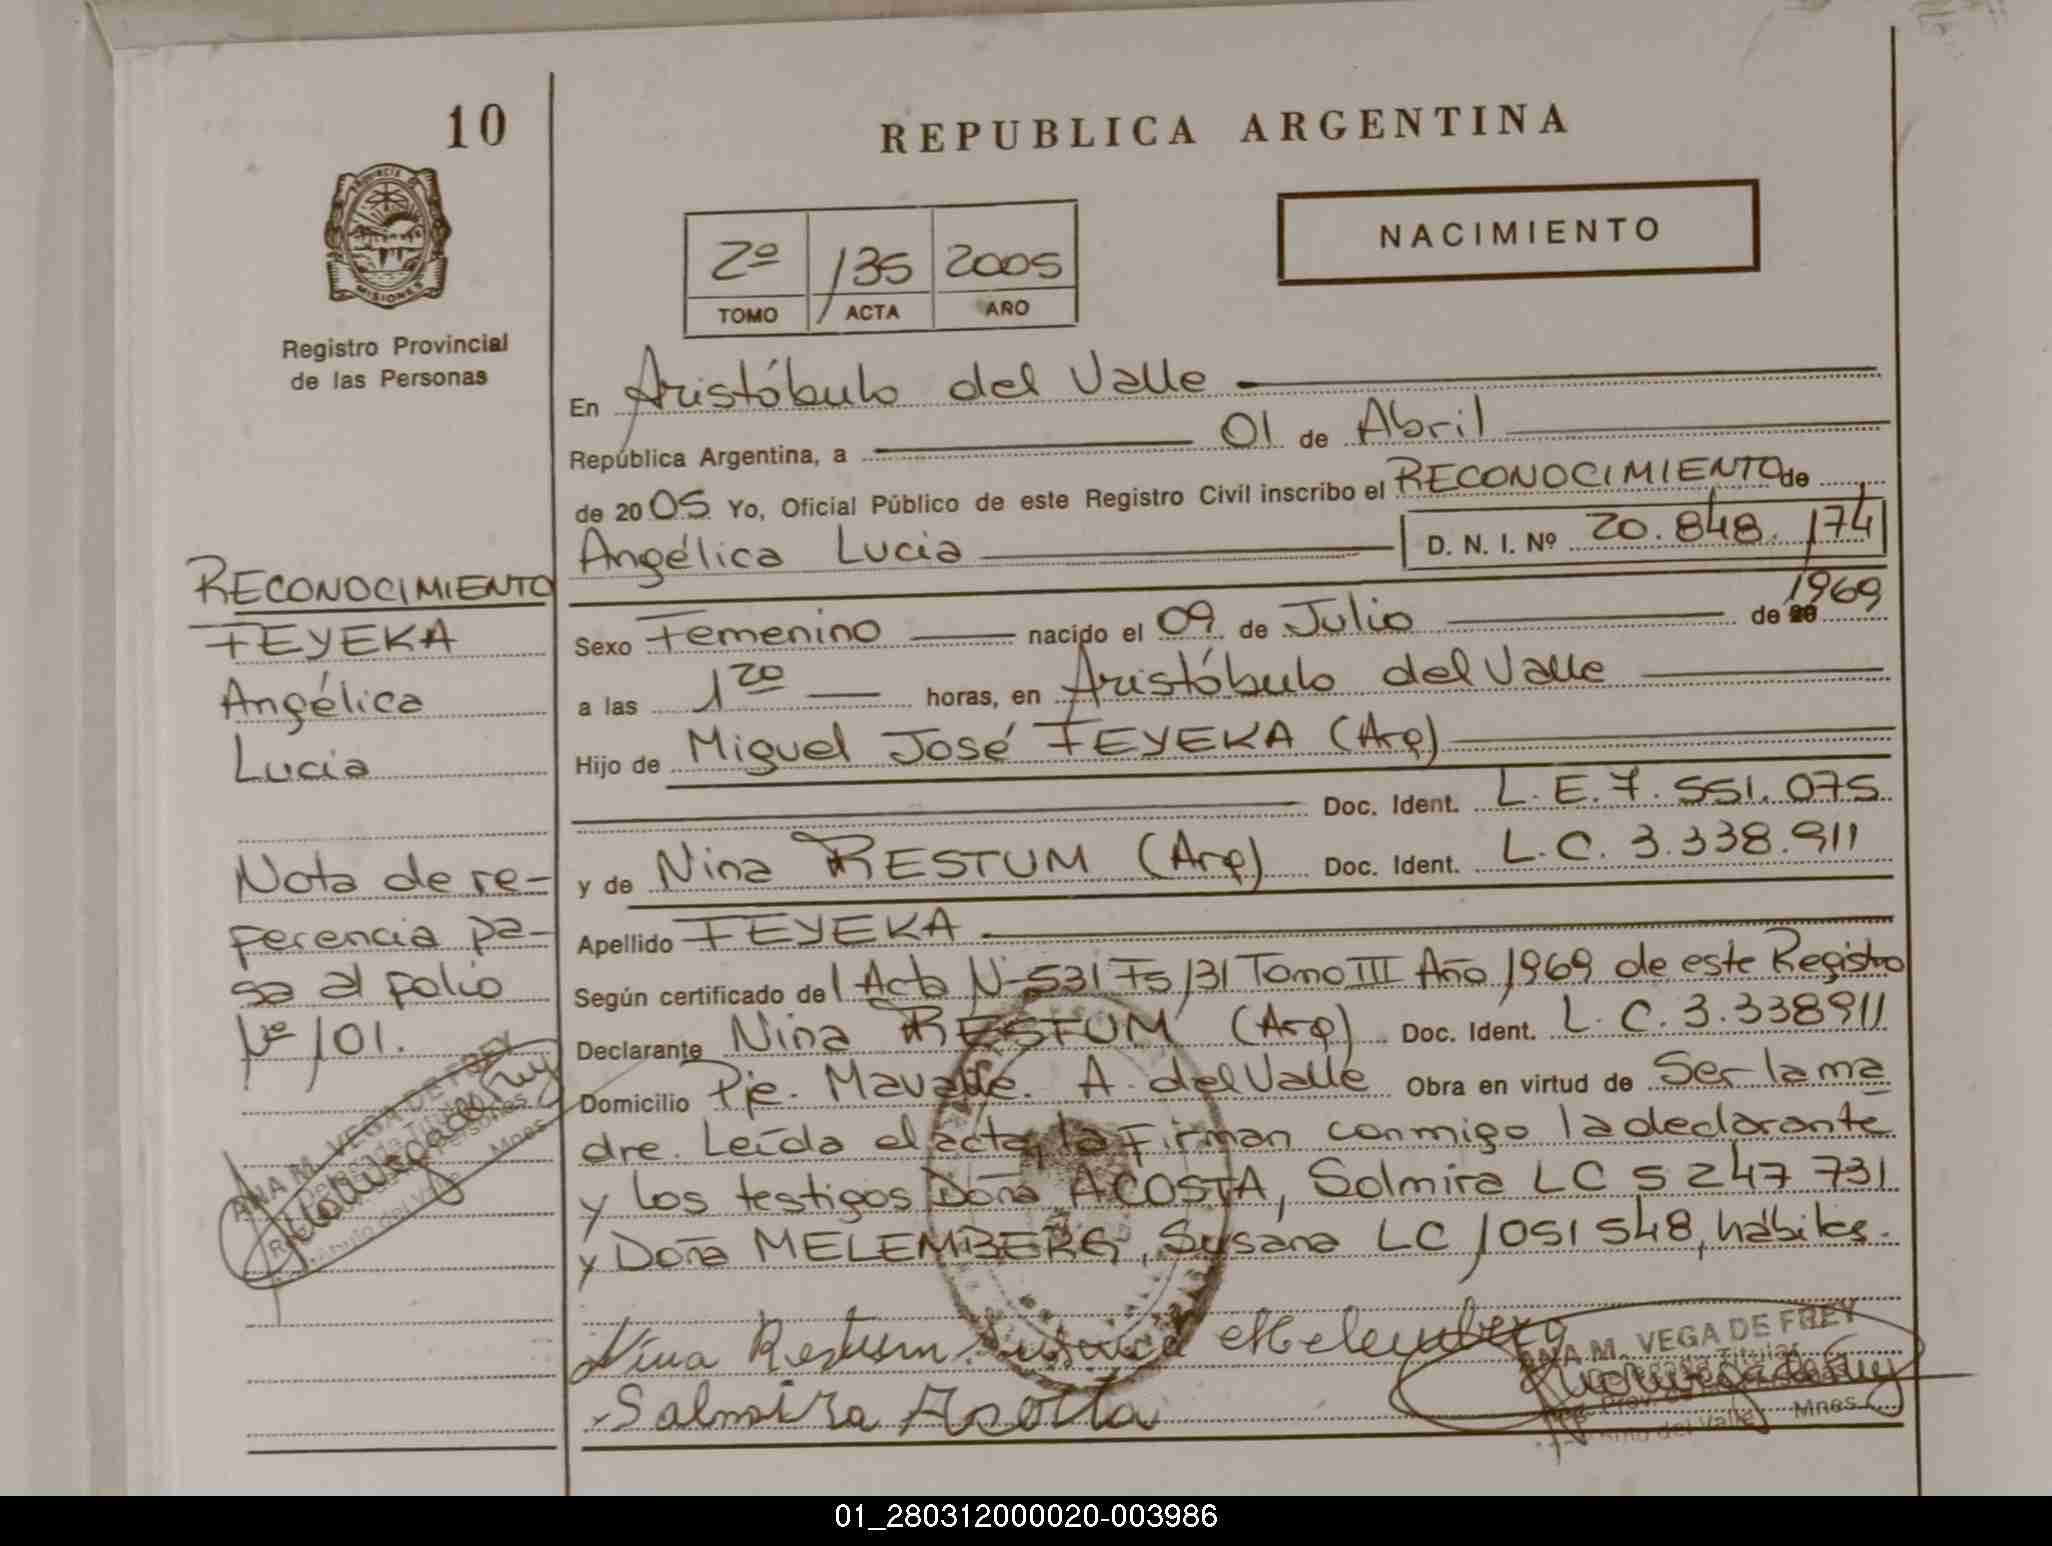 10
REPUBLICA ARGENTINA
PROVINCIA DE
MISIONES
Registro Provincial
de las Personas
2º 135 2005
TOMO ACTA AÑO
NACIMIENTO
En Aristóbulo del Valle
República Argentina, a 01 de Abril
de 2005 Yo, Oficial Público de este Registro Civil inscribo el RECONOCIMIENTO de
Angélica Lucia D. N. I. Nº 20.848.174
Sexo Femenino nacido el 09 de Julio de 1969
a las 1 20 horas, en Aristóbulo del Valle
Hijo de Miguel José FEYEKA (Arg)
Doc. Ident. L.E. 7.551.075
y de Nina RESTUM (Arg) Doc. Ident. L.C. 3.338.911
Apellido FEYEKA
Según certificado del Acta Nº 531 Fs 131 Tomo III Año 1969 de este Registro
Declarante Nina RESTUM (Arg) Doc. Ident. L.C. 3.338911
Domicilio Pje. Mavalle. A. del Valle Obra en virtud de Ser la ma
dre. Leída el acta, la Firman conmigo la declarante
y los testigos Doña ACOSTA, Solmira LC 5 247 731
y Doña MELEMBERG, Susana LC 1051548, hábiles.
Nina Restum Susana Melemberg
Salmira Acosta
ANA M. VEGA DE FREY
del Valle Mnes
RECONOCIMIENTO
FEYEKA
Angélica
Lucia
Nota de re-
ferencia pa-
sa al folio
Nº 101.
ANA M. VEGA DE FREY
del Valle Mnes
01_280312000020-003986